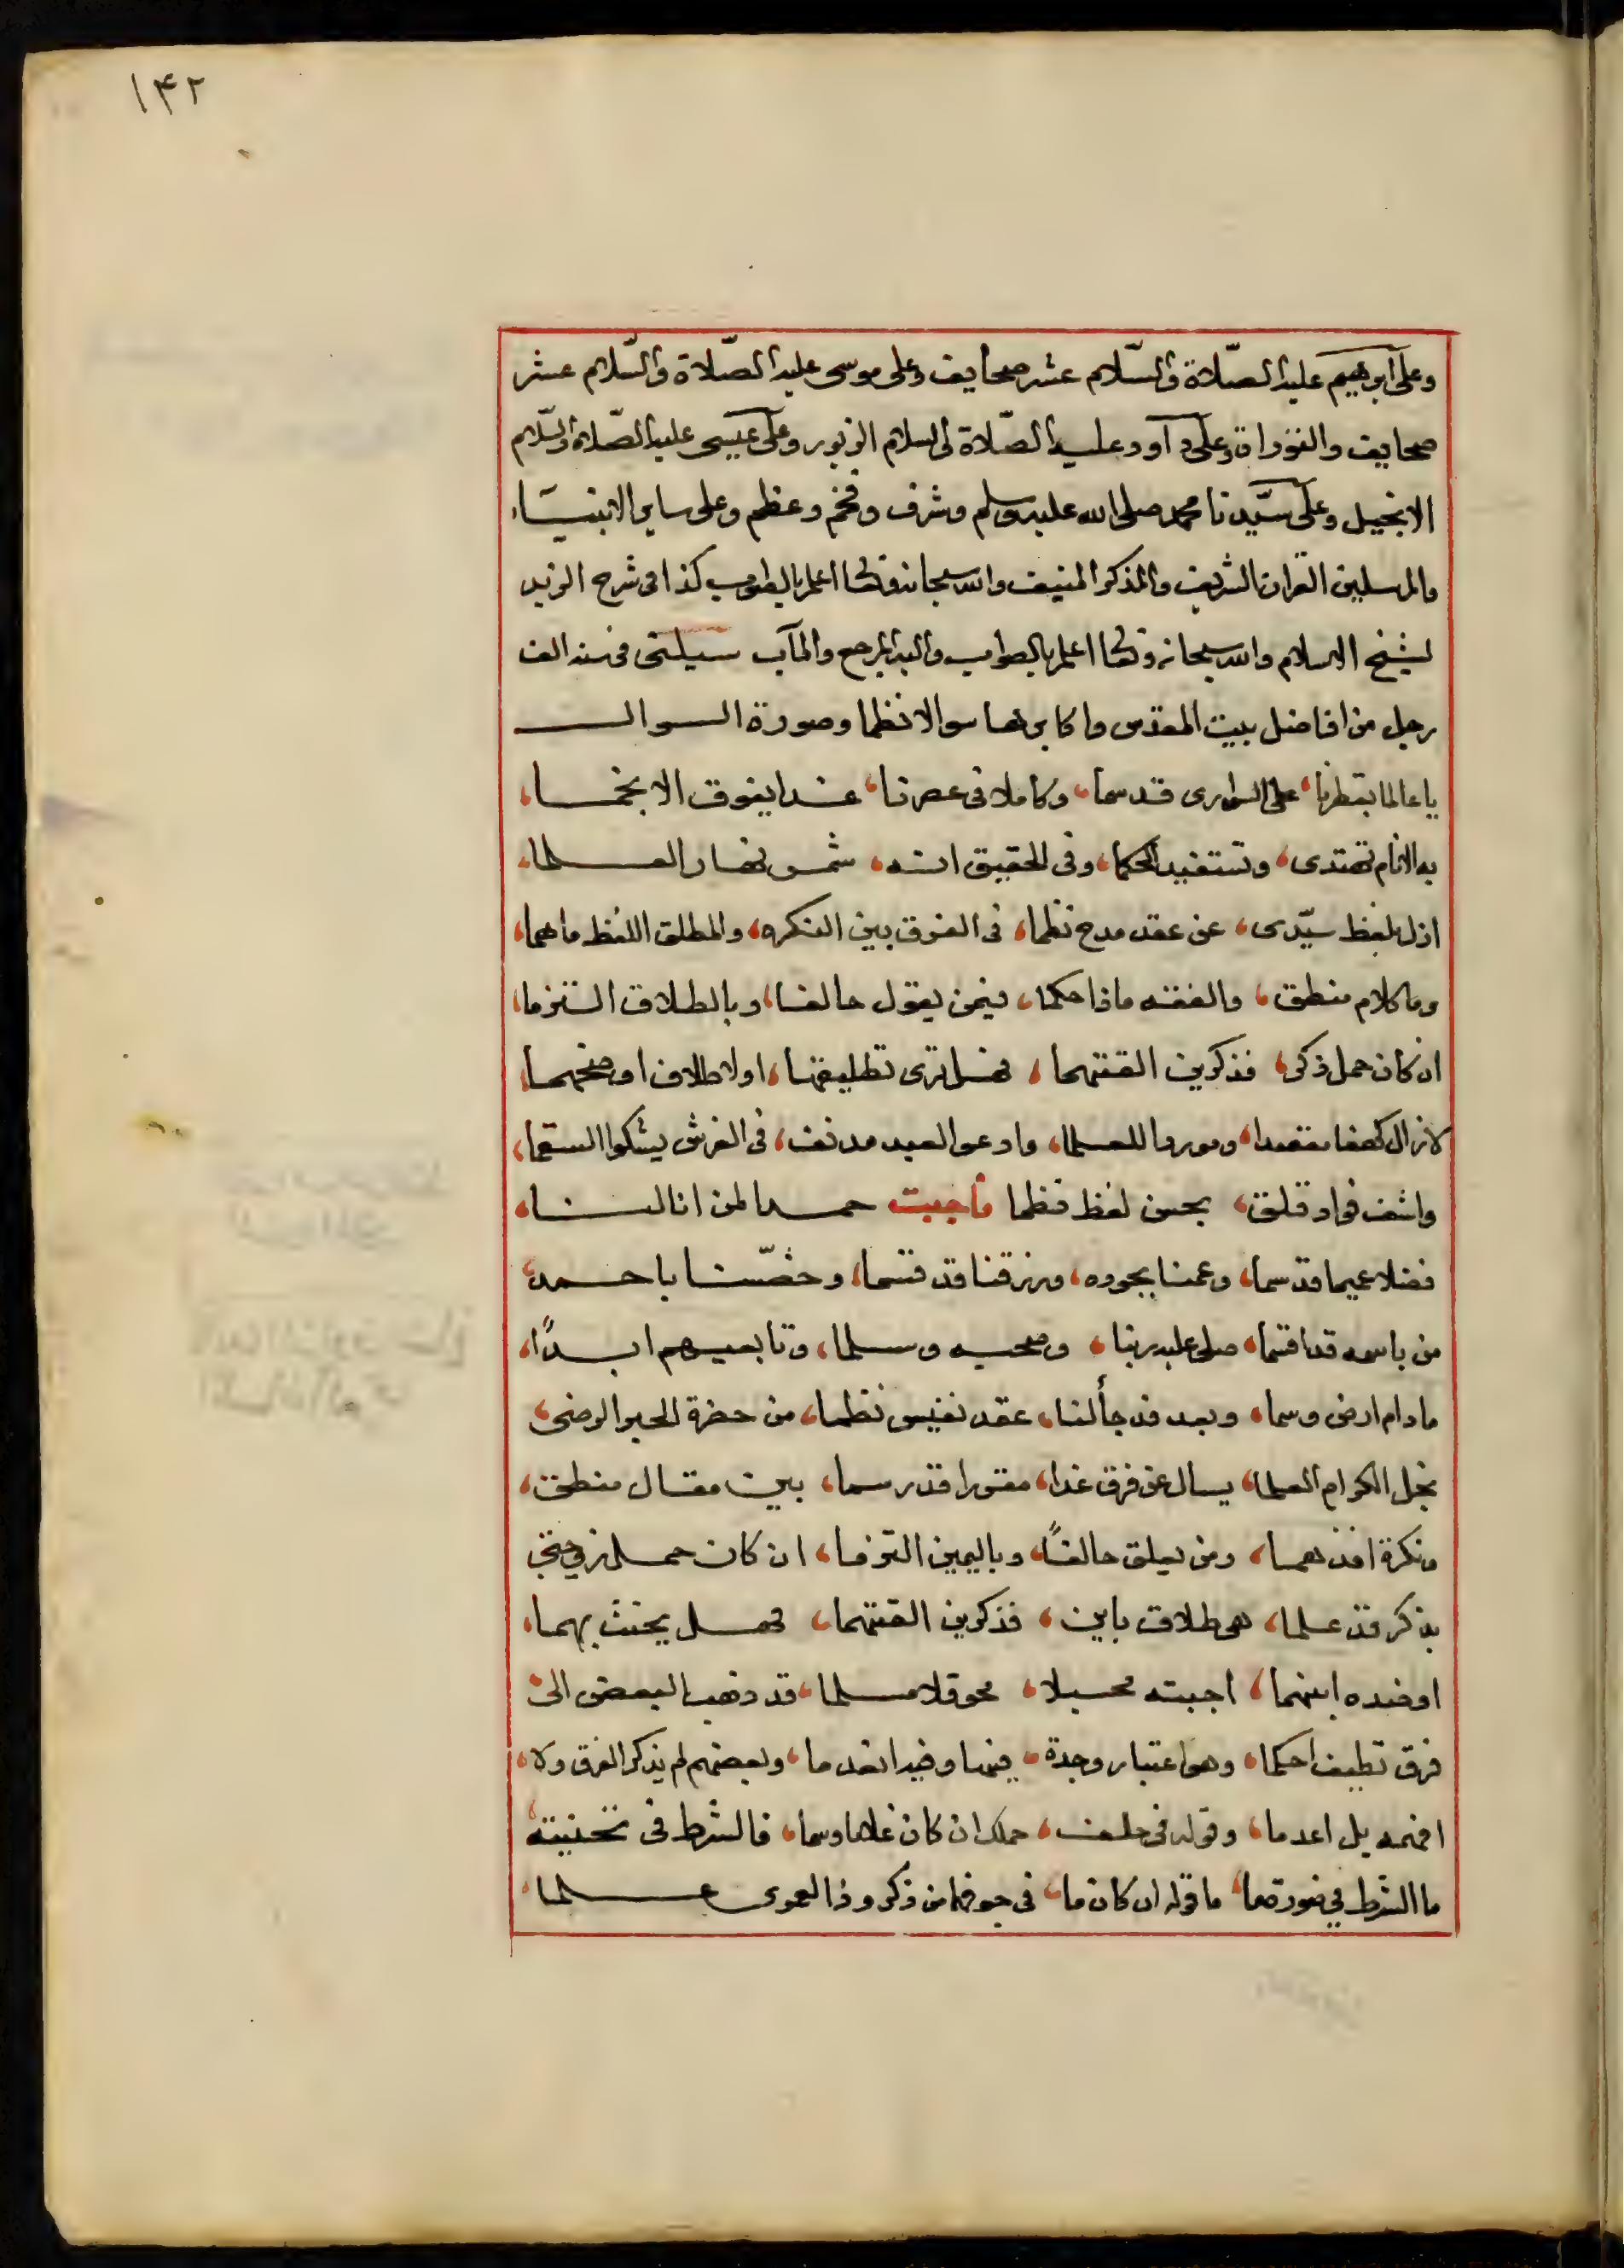 ۱۴۲
وعلى ابرهيم عليه الصّلاة والسّلام عشر صحايف وعلى موسى عليه الصّلاة والسّلام عشر
صحايف والتوراة وعلى داود عليه الصّلاة والسلام الزبور وعلى عيسى عليه الصّلاة والسّلام
الانجيل وعلى سيّدنا محمد صلى الله عليه وسلم وشرف وفخم وعظم وعلى ساير الانبياء
والمرسلين القران الشريف والذكر المنيف والله سبحانه وتعالى اعلم بالصواب كذا في شرح الزبد
لشيخ الاسلام والله سبحانه وتعالى اعلم بالصواب واليه المرجع والمآب سيلتى في سنه الف
رجل من افاضل بيت المقدس واكابرها سوالا نظما وصورة السوال
يا عالما بقطرنا، على السوارى قد سما، وكاملا في عصرنا، غدا يفوق الانجما،
به الانام تهتدى، وتستفيد الحكما، وفي الحقيق انه، شمس نهار العلما،
ازل بلفظ سيّدى، عن عقد مدح نظما، في الفرق بين النكره، والمطلق اللفظ ما هما،
وما كلام منطق، والفقه ماذا حكما، فيمن يقول حالفا، وبالطلاق التزما،
ان كان حمل ذكر، فذكرين القتهما، فهل ترى تطليقها، اولا طلاق اوضحهما،
لا زال كهفا مقصدا، وموردا للعلما، وادعو العبد مدنف، في الفرش يشكو السقما،
واشف فواد قلق، بحسن لفظ نظما فاجبت حمدا لمن انالنا،
فضلا عميما قد سما، وعمنا بجوده، ورزقنا قد قسما، وخصّنا باحمد،
من باسمه قد اقسما، صلى عليه ربنا، وصحبه وسلما، وتابعيهم ابدًا،
ما دام ارض وسما، وبعد قد جأ لنا، عقد نفيس نظما، من حضرة الحبر الرضى،
نجل الكرام العلما، يسال عن فرق غدا، مقررا قد رسما، بين مقال منطق،
ونكرة افذهما، ومن يعلق حالفًا، وباليمين التزما، ان كان حمل زوجتى
بذكر قد علما، هى طلاق باين، فذكرين القتهما، فهل يحنث بهما،
اوضده ابنهما، اجبته محسبلا، محوقلا مسلما، قد ذهب البعض الى،
فرق لطيف احكما، وهو اعتبار وحدة، فيها وقيد انعدما، وبعضهم لم يذكر الفرق ولا،
افهمه بل اعدما، وقوله في حلف، حملك ان كان غلاما وسما، فالشرط في تحنيثه،
ما الشرط في صورتها، ما قوله ان كان ما، في جوفها من ذكر وذا لعمرى علما،